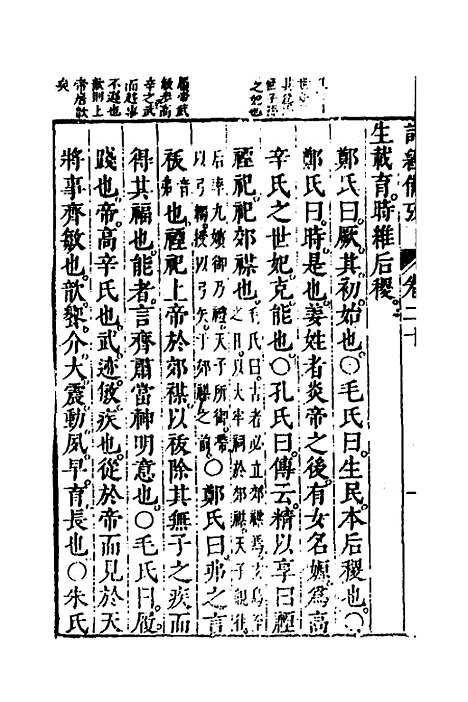 卷二十
生載育時維后稷
鄭氏曰厥其初始也○毛氏曰生民本后稷也○
鄭氏曰時是也姜姓者炎帝之後有女名嫄為高
辛氏之世妃克能也○孔氏曰傳云精以享曰禋
禋祀祀郊禖也毛氏曰古者必立郊禖焉玄鳥至之日以大牢祠於郊禖天子親往
后率九嬪御乃禮天子所御帶以弓韣授以弓矢于郊禖之前○鄭氏曰弗之言
祓音弗也禋祀上帝於郊禖以祓除其無子之疾而
得其福也能者言齊肅當神明意也○毛氏曰履
踐也帝高辛氏也武迹敏疾也從於帝而見於天
將事齊敏也歆饗介大震動夙早育長也○朱氏
之妃也
履帝武
辛之武
不遲也
歆則上
帝居歆
矣